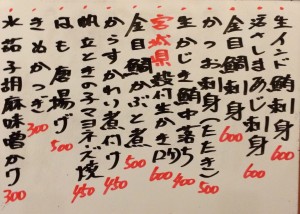 生インド鮪刺身 600
活〆しまあじ刺身 600
金目鯛刺身 600
生かつお刺身(たたき) 500
生かじき鮪中落ち 400
宮城県殻付生かき 600
金目鯛かぶと煮 500
からすかれい煮付け 450
帆立ときの子マヨネーズ焼 450
はも唐揚げ 500
きぬかつぎ 300
水茄子胡麻味噌かけ 300